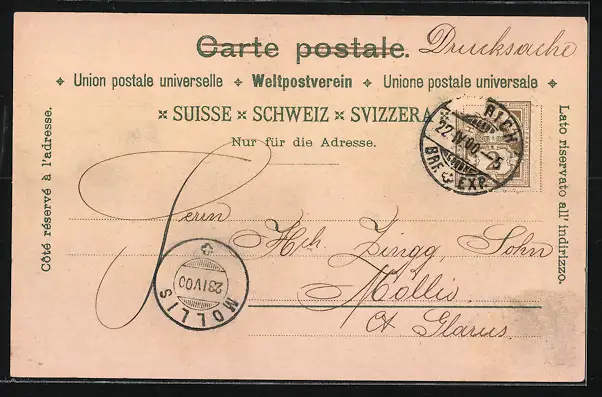 Carte postale. Drucksache
Union postale universelle Weltpostverein Unione postale universale
SUISSE SCHWEIZ SVIZZERA
Nur für die Adresse.
Côté réservé à l'adresse.
Lato riservato all' indirizzo.
22.IV.00.–5
BRF. EXP.
Herrn
Hch. Zingg, Sohn
Mollis
Ct Glarus.
23 IV 00
MOLLIS